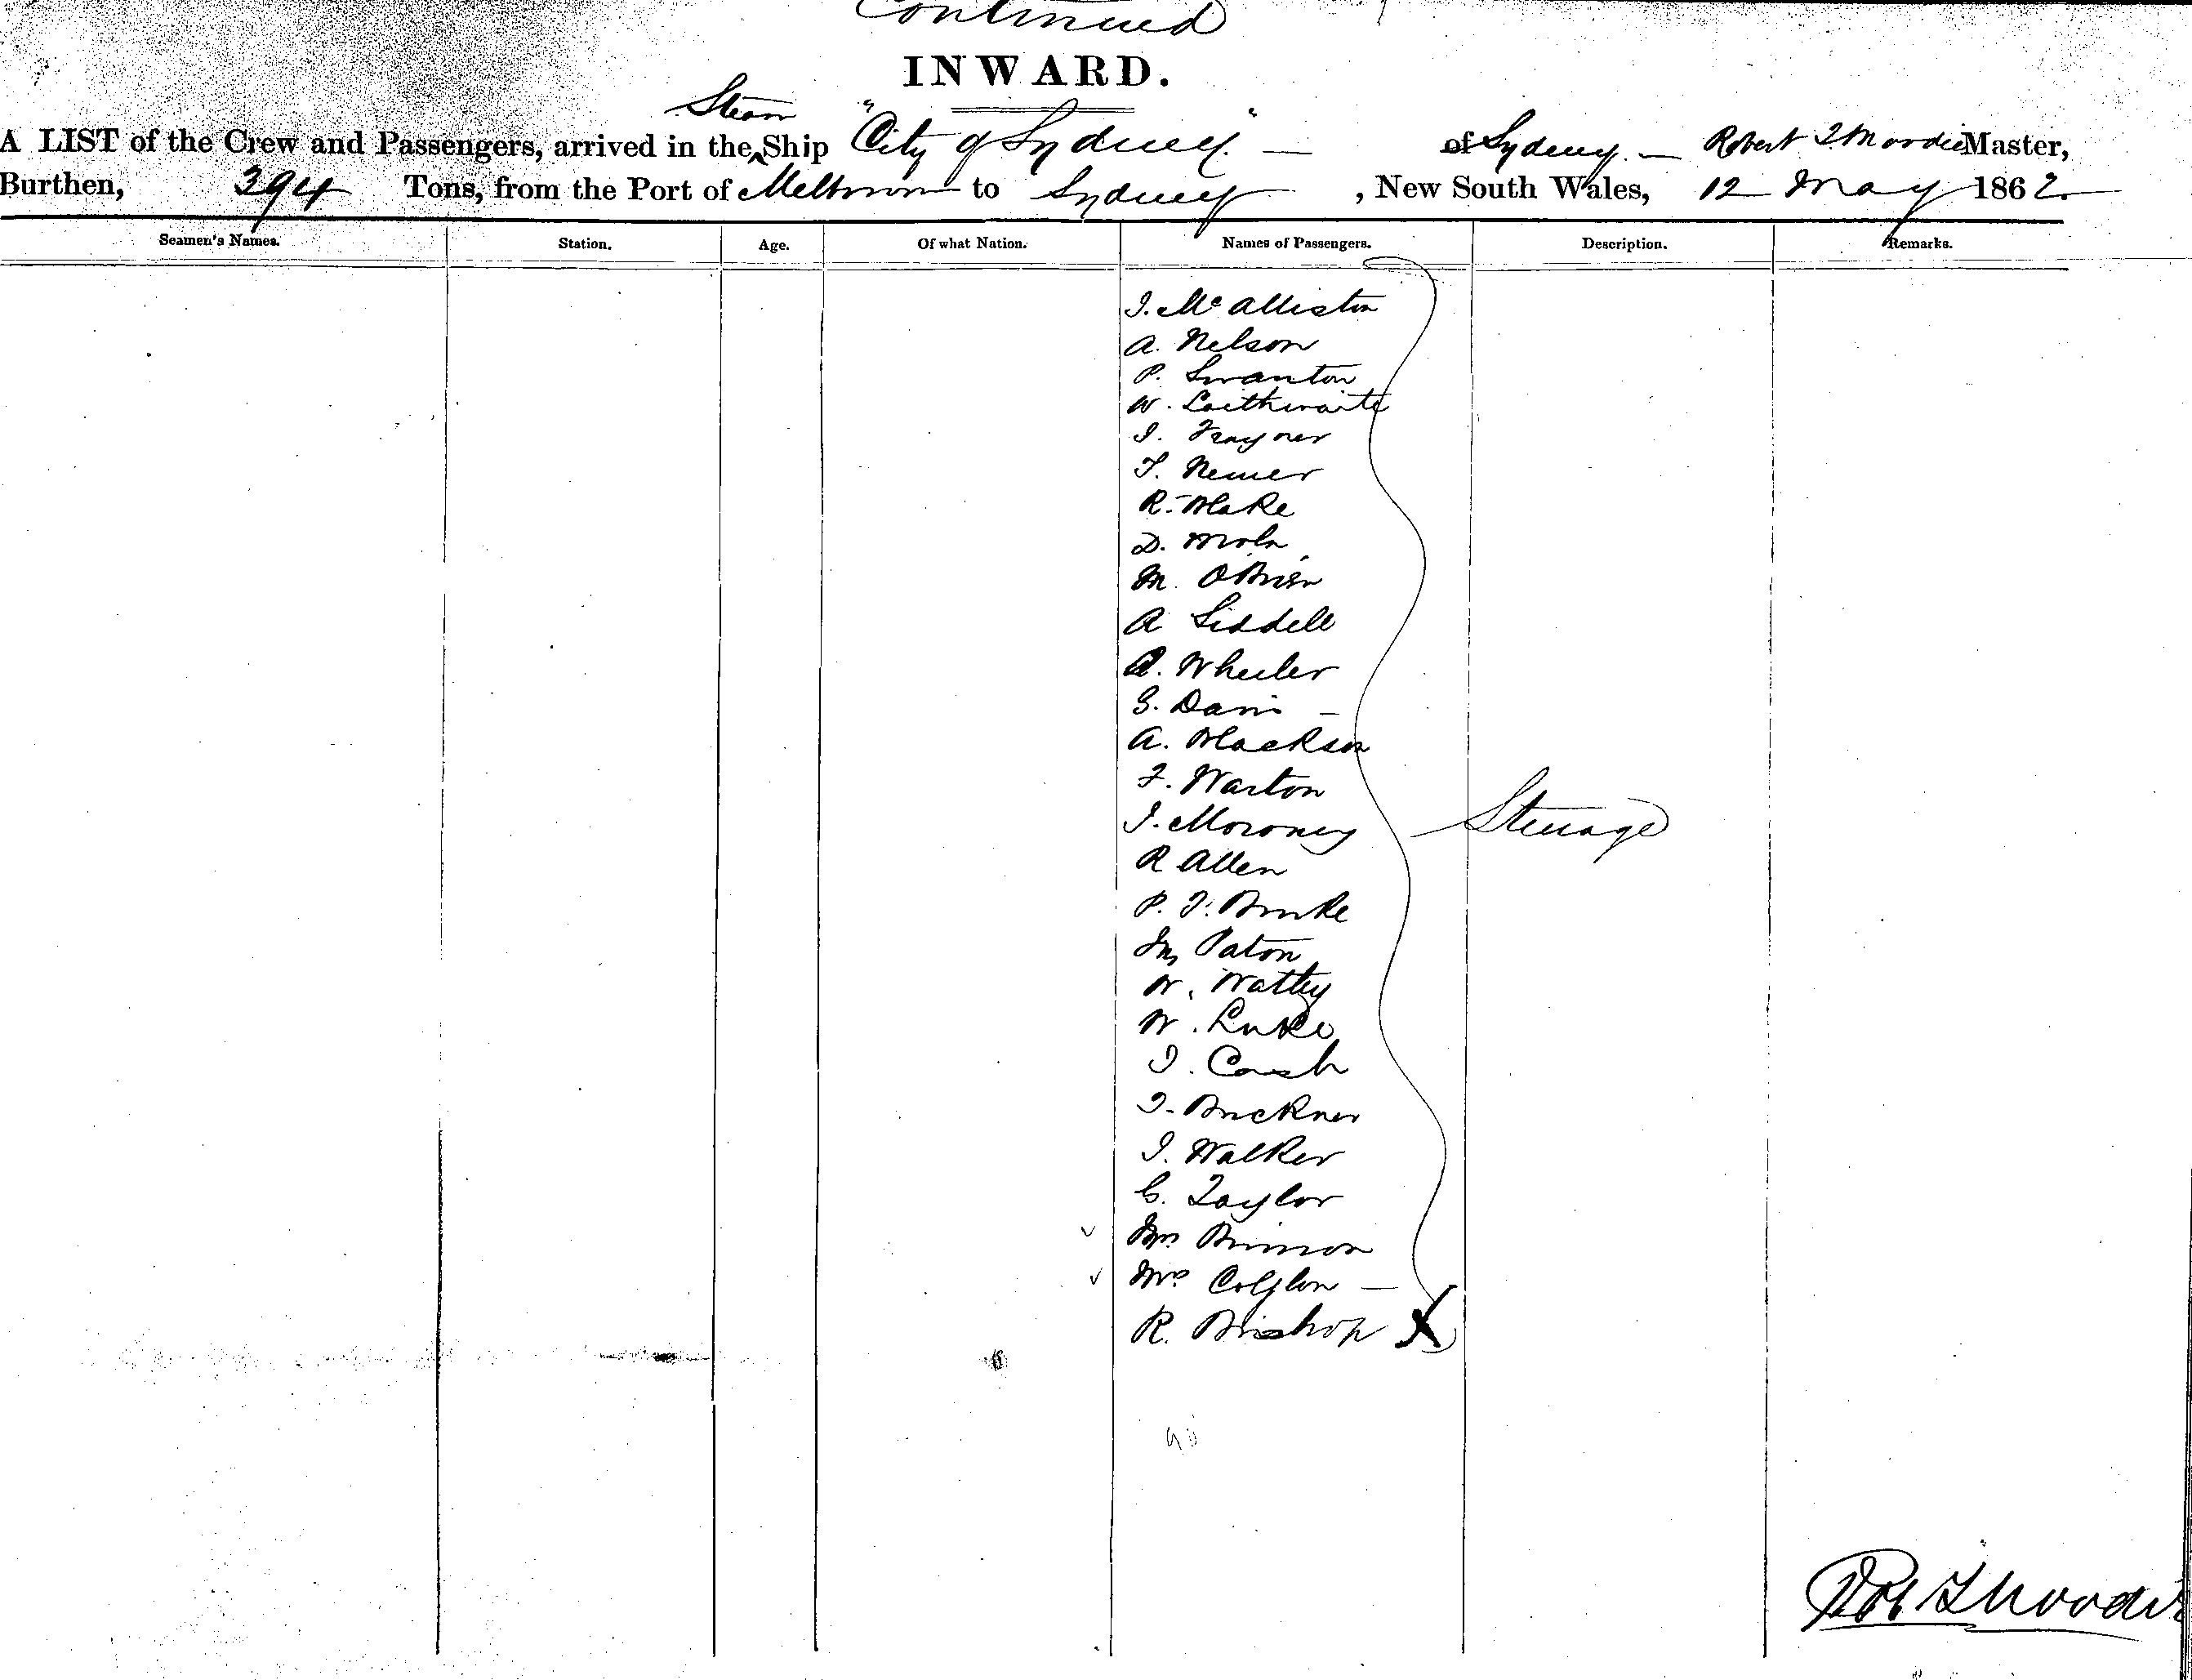 Continued
INWARD.
Steam
A LIST of the Crew and Passengers, arrived in the Ship "City of Sydney" — of Sydney — Robert T Moodie Master,
Burthen, 394 Tons, from the Port of Melbourne to Sydney, New South Wales, 12 May 1862
Seamen's Names. Station. Age. Of what Nation. Names of Passengers. Description. Remarks.
J. McAllister
A. Nelson
P. Swanton
W. Laithwaite
J. Trayner
T. Nemer
R. Blake
D.
M. O'Brien
A Liddell
A. Wheeler
G. Davis —
A. Blackson
F. Warton
J. Moroney
Steerage
R Allen
P. J. Burke
Jn, Paton
W. Wattey
W. Luke
J. Cash
J. Buckner
J. Walker
C. Taylor
Mrs
Mrs —
R. Bishop X
90
Rob T Moodie